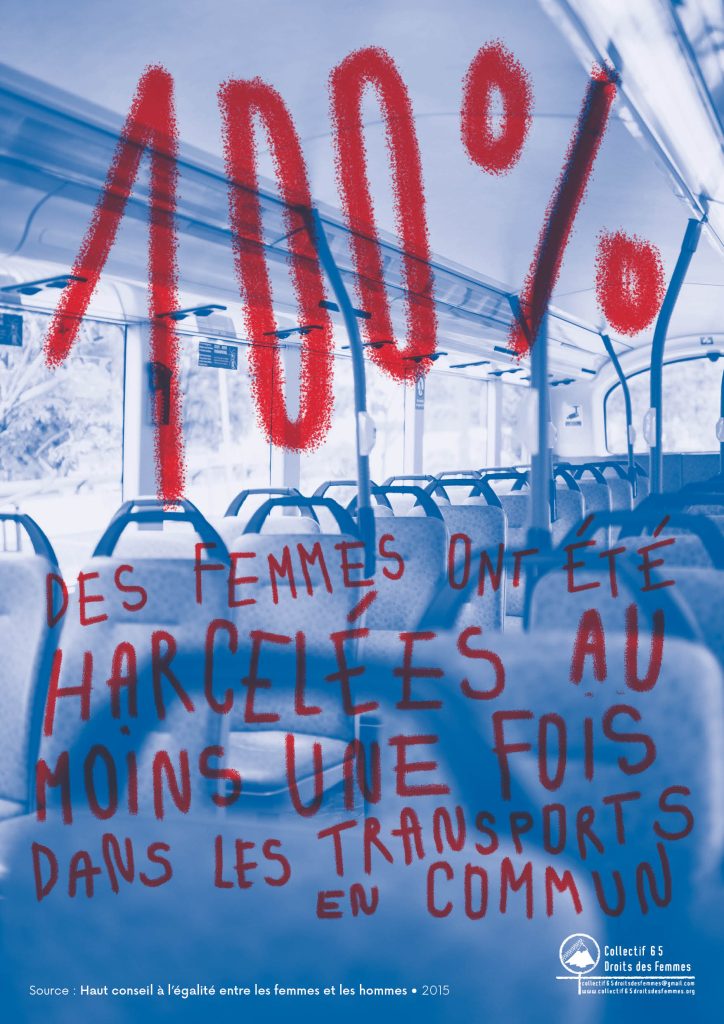 100%
DES FEMMES ONT ÉTÉ
HARCELÉES AU
MOINS UNE FOIS
DANS LES TRANSPORTS
EN COMMUN
Collectif 65
Droits des Femmes
collectif65droitsdesfemmes@gmail.com
www.collectif65droitsdesfemmes.org
Source : Haut conseil à l'égalité entre les femmes et les hommes • 2015